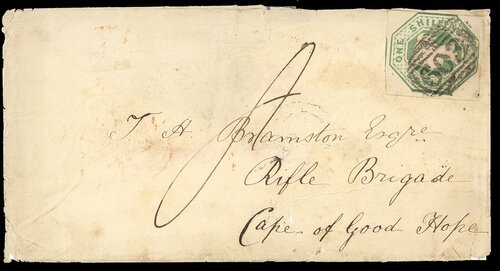 ONE SHILLING
T. H. Bramston Esqre
Rifle Brigade
Cape of Good Hope